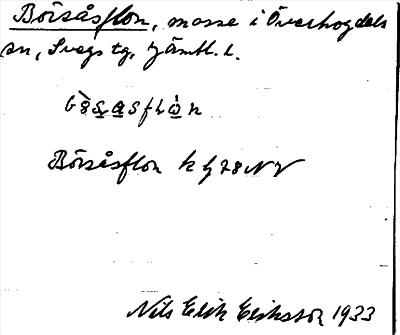 Börsåsflon, mosse i Överhogdals
sn, Svegs tg, Jämtl. l.
Börsåsflon k bl 78 NV
Nils Erik Eriksson 1933